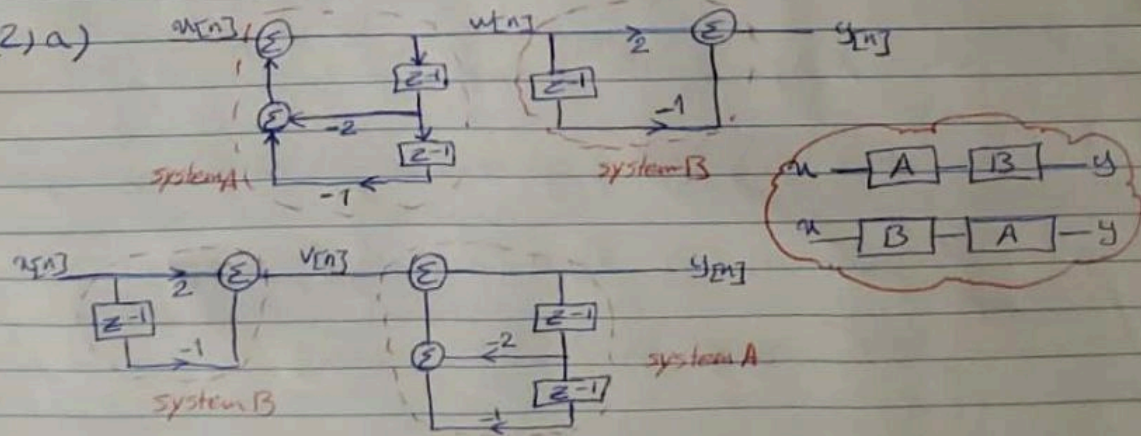 2, a) x[n] Σ w[n] 2 Σ y[n]
z-1 z-1
Σ -2 -1
z-1
system A -1 system B
x A B y
x B A y
x[n] 2 Σ v[n] Σ y[n]
z-1 z-1
-1 Σ -2 system A
z-1
system B -1